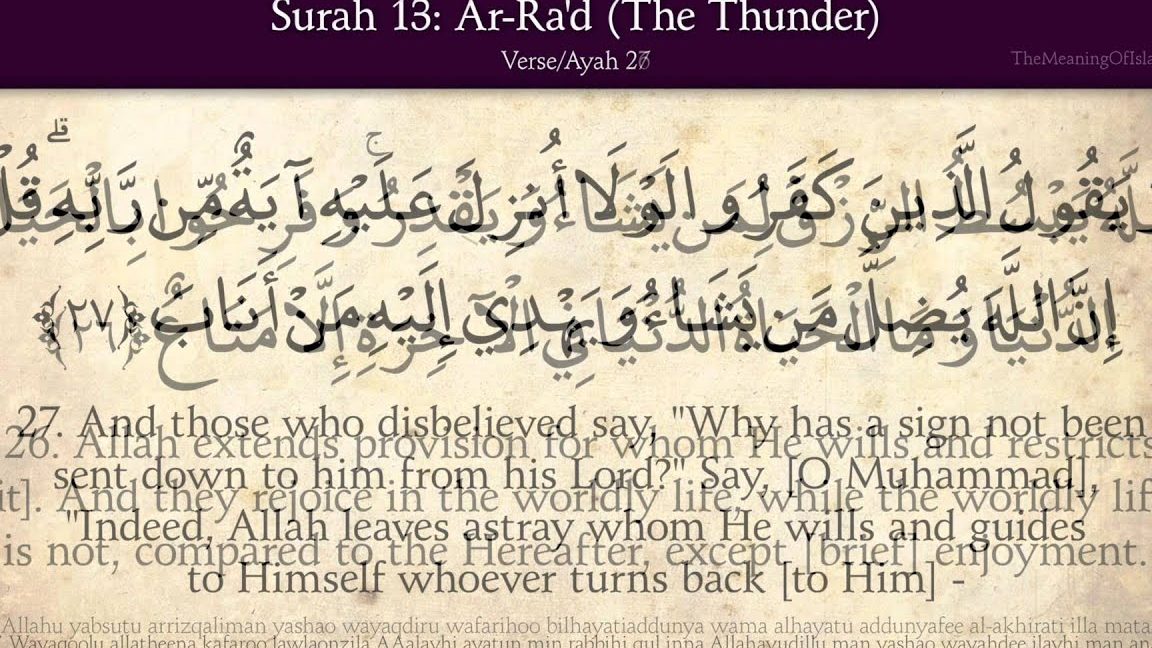 Surah 13: Ar-Ra'd (The Thunder)
Verse/Ayah 27
TheMeaningOfIsla
يَقُولُ الَّذِينَ كَفَرُوا لَوْلَا أُنزِلَ عَلَيْهِ آيَةٌ مِّن رَّبِّهِ ۗ قُلْ
إِنَّ اللَّهَ يُضِلُّ مَن يَشَاءُ وَيَهْدِي إِلَيْهِ مَنْ أَنَابَ ﴿٢٧﴾
27. And those who disbelieved say, "Why has a sign not been
26. Allah extends provision for whom He wills and restricts
sent down to him from his Lord?" Say, [O Muhammad],
it]. And they rejoice in the worldly life, while the worldly lif
"Indeed, Allah leaves astray whom He wills and guides
is not, compared to the Hereafter, except [brief] enjoyment.
to Himself whoever turns back [to Him] -
Allahu yabsutu arrizqaliman yashao wayaqdiru wafarihoo bilhayatiaddunya wama alhayatu addunyafee al-akhirati illa mata
Wayaqoolu allatheena kafaroo lawlaonzila AAalayhi ayatun min rabbihi qul inna Allahayudillu man yashao wayahdee ilayhi man an